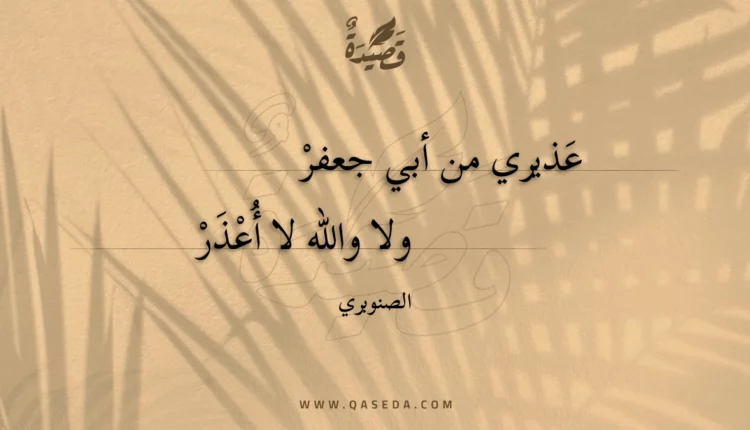 قَصِيدَةٌ
عَذيري من أبي جعفرْ
ولا والله لا أُعْذَرْ
الصنوبري
WWW.QASEDA.COM